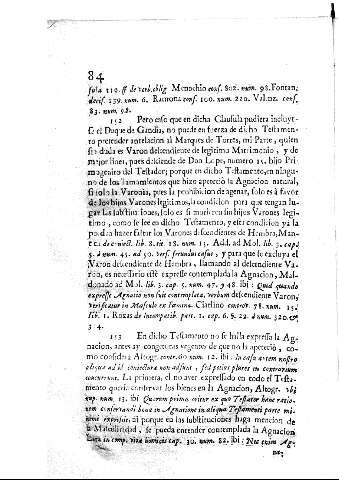 84
sola 119. ff de verb. oblig. Menochio cons. 802. num. 98. Fontan.
decis. 139. num. 6. Ramona cons. 100. num. 220. Valenz. cons.
83. num. 98.
152 Pero caso que en dicha Clausula pudiera incluyr-
se el Duque de Gandia, no puede en fuerza de dicho Testamen-
to pretender antelacion al Marques de Torres, mi Parte, quien
sin duda es Varon descendente de legitimo Matrimonio, y de
mejor linea, pues desciende de Don Lope, numero 15. hijo Pri-
mogenito del Testador; porque en dicho Testamento, en ningu-
no de los llamamientos que hizo apeteció la Agnacion natural,
si solo la Varonia, pues la prohibicion de agenar, solo es à favor
de los hijos Varones legitimos, la condicion para que tengan lu-
gar las substituciones, solo es si murieren sin hijos Varones legi-
timos, como se lee en dicho Testamento, y esta condicion ya la
podian hazer faltar los Varones descendientes de Hembra, Man-
tica de coniect. lib. 8. tit. 18. num. 13. Add. ad Mol. lib. 3. cap.
5. à num. 45. ad 50. vers. secundus casus, y para que se excluya el
Varon descendiente de Hembra, llamando al descendiente Va-
ron, es necesario esté expresse contemplada la Agnacion, Mal-
donado ad Mol. lib. 3. cap. 5. num. 47. y 48. ibi: Quod quando
expresse Agnatio non fuit contemplata, verbum descendentes Varon,
verificatur in Masculo ex fœmina. Castillo controv. 78. num. 15.
lib. 1. Roxas de Incompatib. part. 1. cap. 6. §. 22. à num. 320. &
324.
153 En dicho Testamento no se halla expressa la Ag-
nacion, antes ay congeturas urgentes de que no la apeteció, co-
mo considera Altogr. contr. 60 num. 12. ibi: In casu autem nostro
aliqua ad id coniectura non adsunt, sed potius plures in contrarium
concurrunt. La primera, el no aver expressado en todo el Testa-
mento queria conservar los bienes en la Agnacion, Altogr. ubi
sup. num. 13. ibi Quorum primo oritur ex quo Testator hanc ratio-
nem conservandi bona in Agnatione in aliqua Testamenti parte mi-
nime expressit, ni porque en las substituciones haga mencion de
la Masculinidad, se pueda entender contemplada la Agnacion
Luca in comp. vita humicis cap. 30. num. 82. ibi: Nec enim Ag-